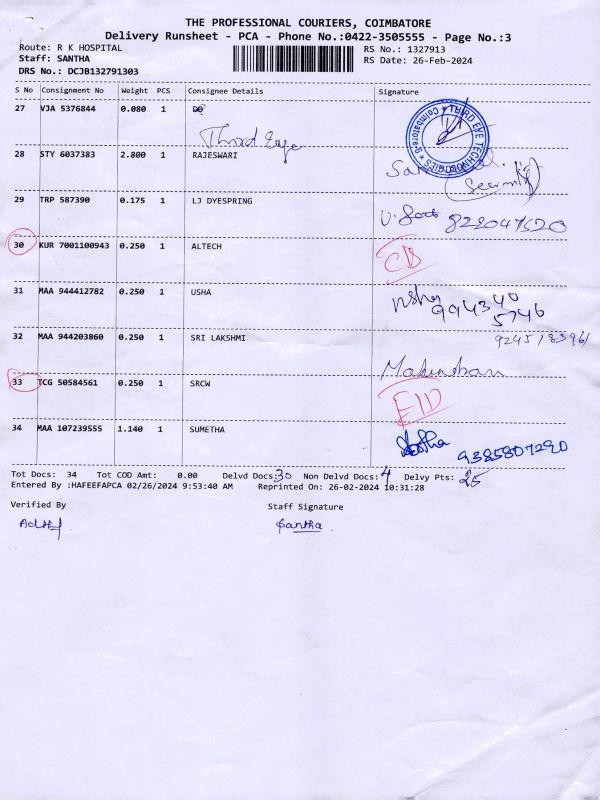 THE PROFESSIONAL COURIERS, COIMBATORE
Delivery Runsheet - PCA - Phone No.:0422-3505555 - Page No.:3
Route: R K HOSPITAL RS No.: 1327913
Staff: SANTHA RS Date: 26-Feb-2024
DRS No.: DCJB132791303
S No Consignment No Weight PCS Consignee Details Signature
27 VJA 5376844 0.080 1
Third Eye
THIRD EYE TECHNOLOGIES * Coimbatore-9 *
28 STY 6037383 2.800 1 RAJESWARI
(Security)
29 TRP 587390 0.175 1 LJ DYESPRING
30 KUR 7001100943 0.250 1 ALTECH
CD
31 MAA 944412782 0.250 1 USHA
Usha 994340
5746
32 MAA 944203860 0.250 1 SRI LAKSHMI
33 TCG 50584561 0.250 1 SRCW
34 MAA 107239555 1.140 1 SUMETHA
9385807290
Tot Docs: 34 Tot COD Amt: 0.00 Delvd Docs: 30 Non Delvd Docs: 4 Delvy Pts: 25
Entered By :HAFEEFAPCA 02/26/2024 9:53:40 AM Reprinted On: 26-02-2024 10:31:28
Verified By Staff Signature
Santha